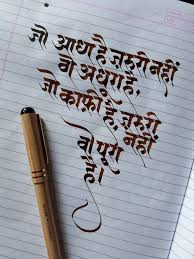 जो आधा है, ज़रूरी नहीं
वो अधूरा है,
जो काफ़ी है, ज़रूरी
नहीं
वो पूरा
है।